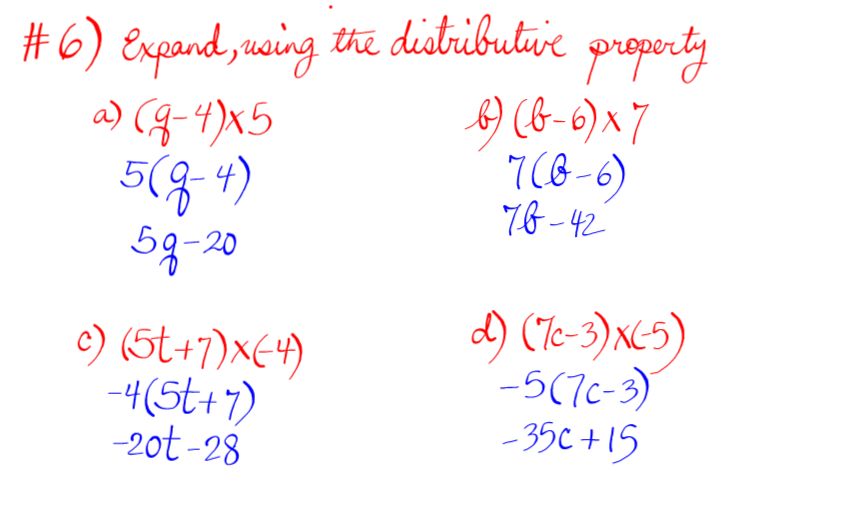 #6) Expand, using the distributive property
a) (q-4)x5
5(q-4)
5q-20
b) (b-6)x7
7(b-6)
7b-42
c) (5t+7)x(-4)
-4(5t+7)
-20t-28
d) (7c-3)x(-5)
-5(7c-3)
-35c+15